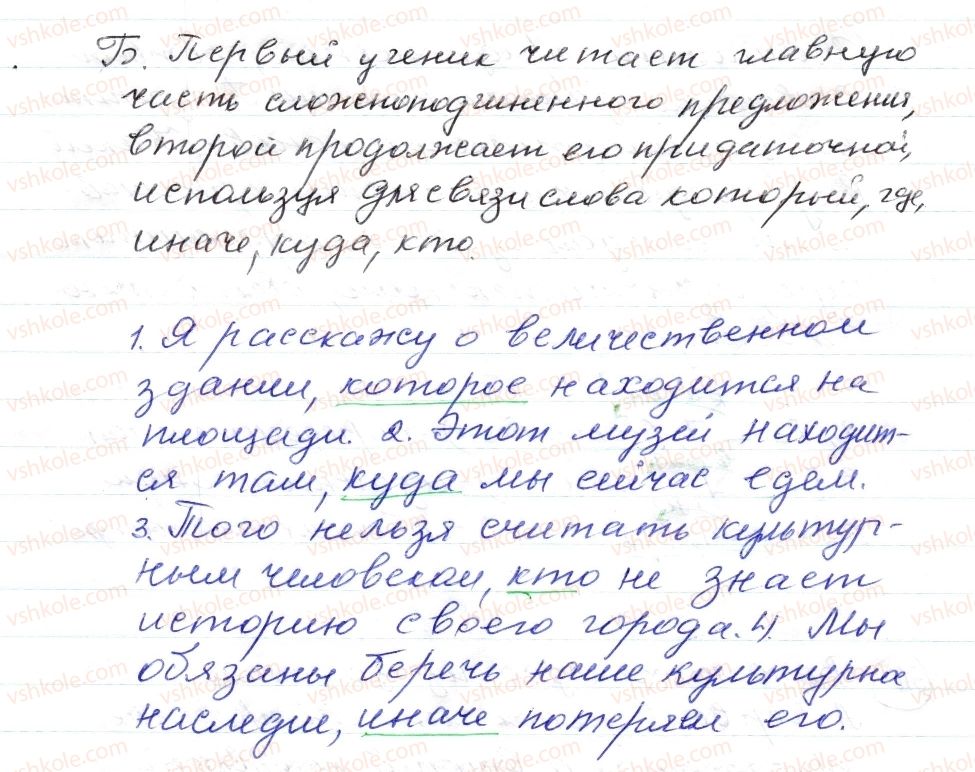 Б. Первый ученик читает главную
часть сложноподчиненного предложения,
второй продолжает его придаточной,
используя для связи слова который, где,
иначе, куда, кто.
1. Я расскажу о величественном
здании, которое находится на
площади. 2. Этот музей находит-
ся там, куда мы сейчас едем.
3. Того нельзя считать культур-
ным человеком, кто не знает
историю своего города. 4. Мы
обязаны беречь наше культурна
наследие, иначе потеряем его.